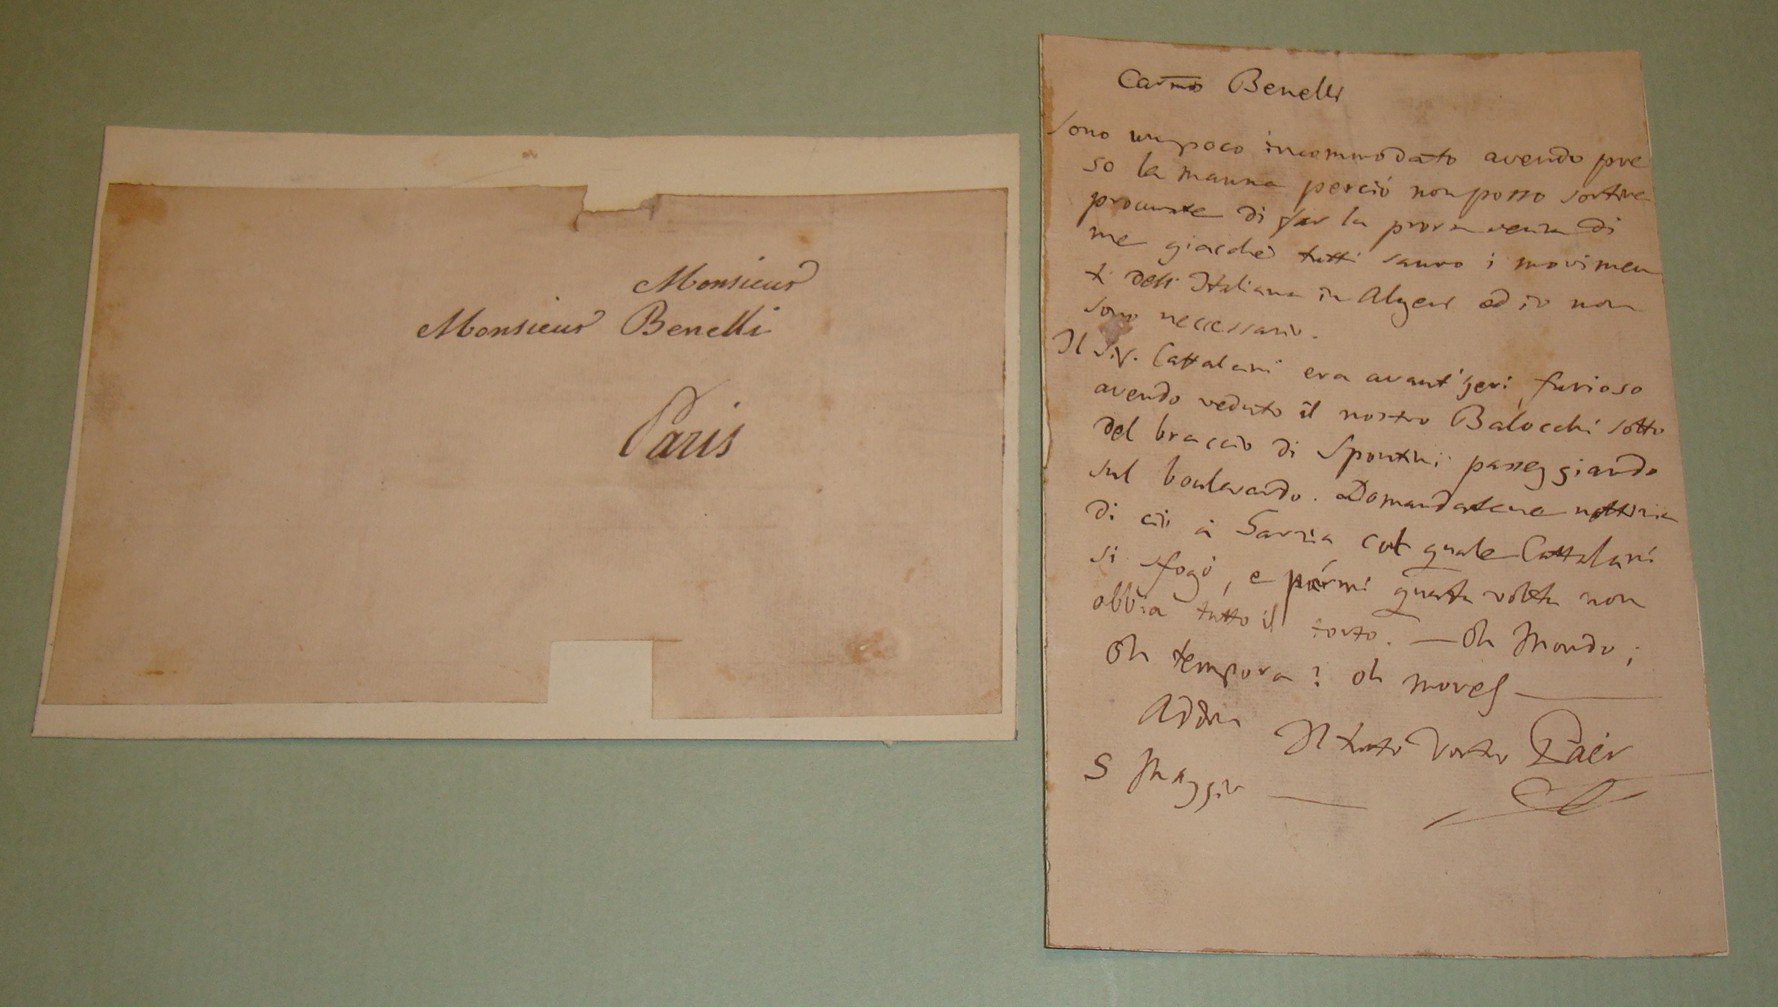 Monsieur
Monsieur Benelli
Paris
Carmo Benelli
sono un poco incommodato avendo pre
so la manna perciò non posso sortire
procurate di far la prova senza di
me giacchè tutti sanno i movimen
ti dell'Italiana in Algeri ed io non
sono neccessario.
Il Sigr. Cattalani era avant'jeri furioso
avendo veduto il nostro Balocchi sotto
del braccio di Spontini passeggiando
sul boulevardo. Domandatene nottizia
di ciò a Garzia col quale Cattalani
si sfogò, e parmi questa volta non
abbia tutto il torto. — Oh Mondo;
Oh tempora? oh mores —
Addio
Il tutto Vostro Paër
5 Maggio —